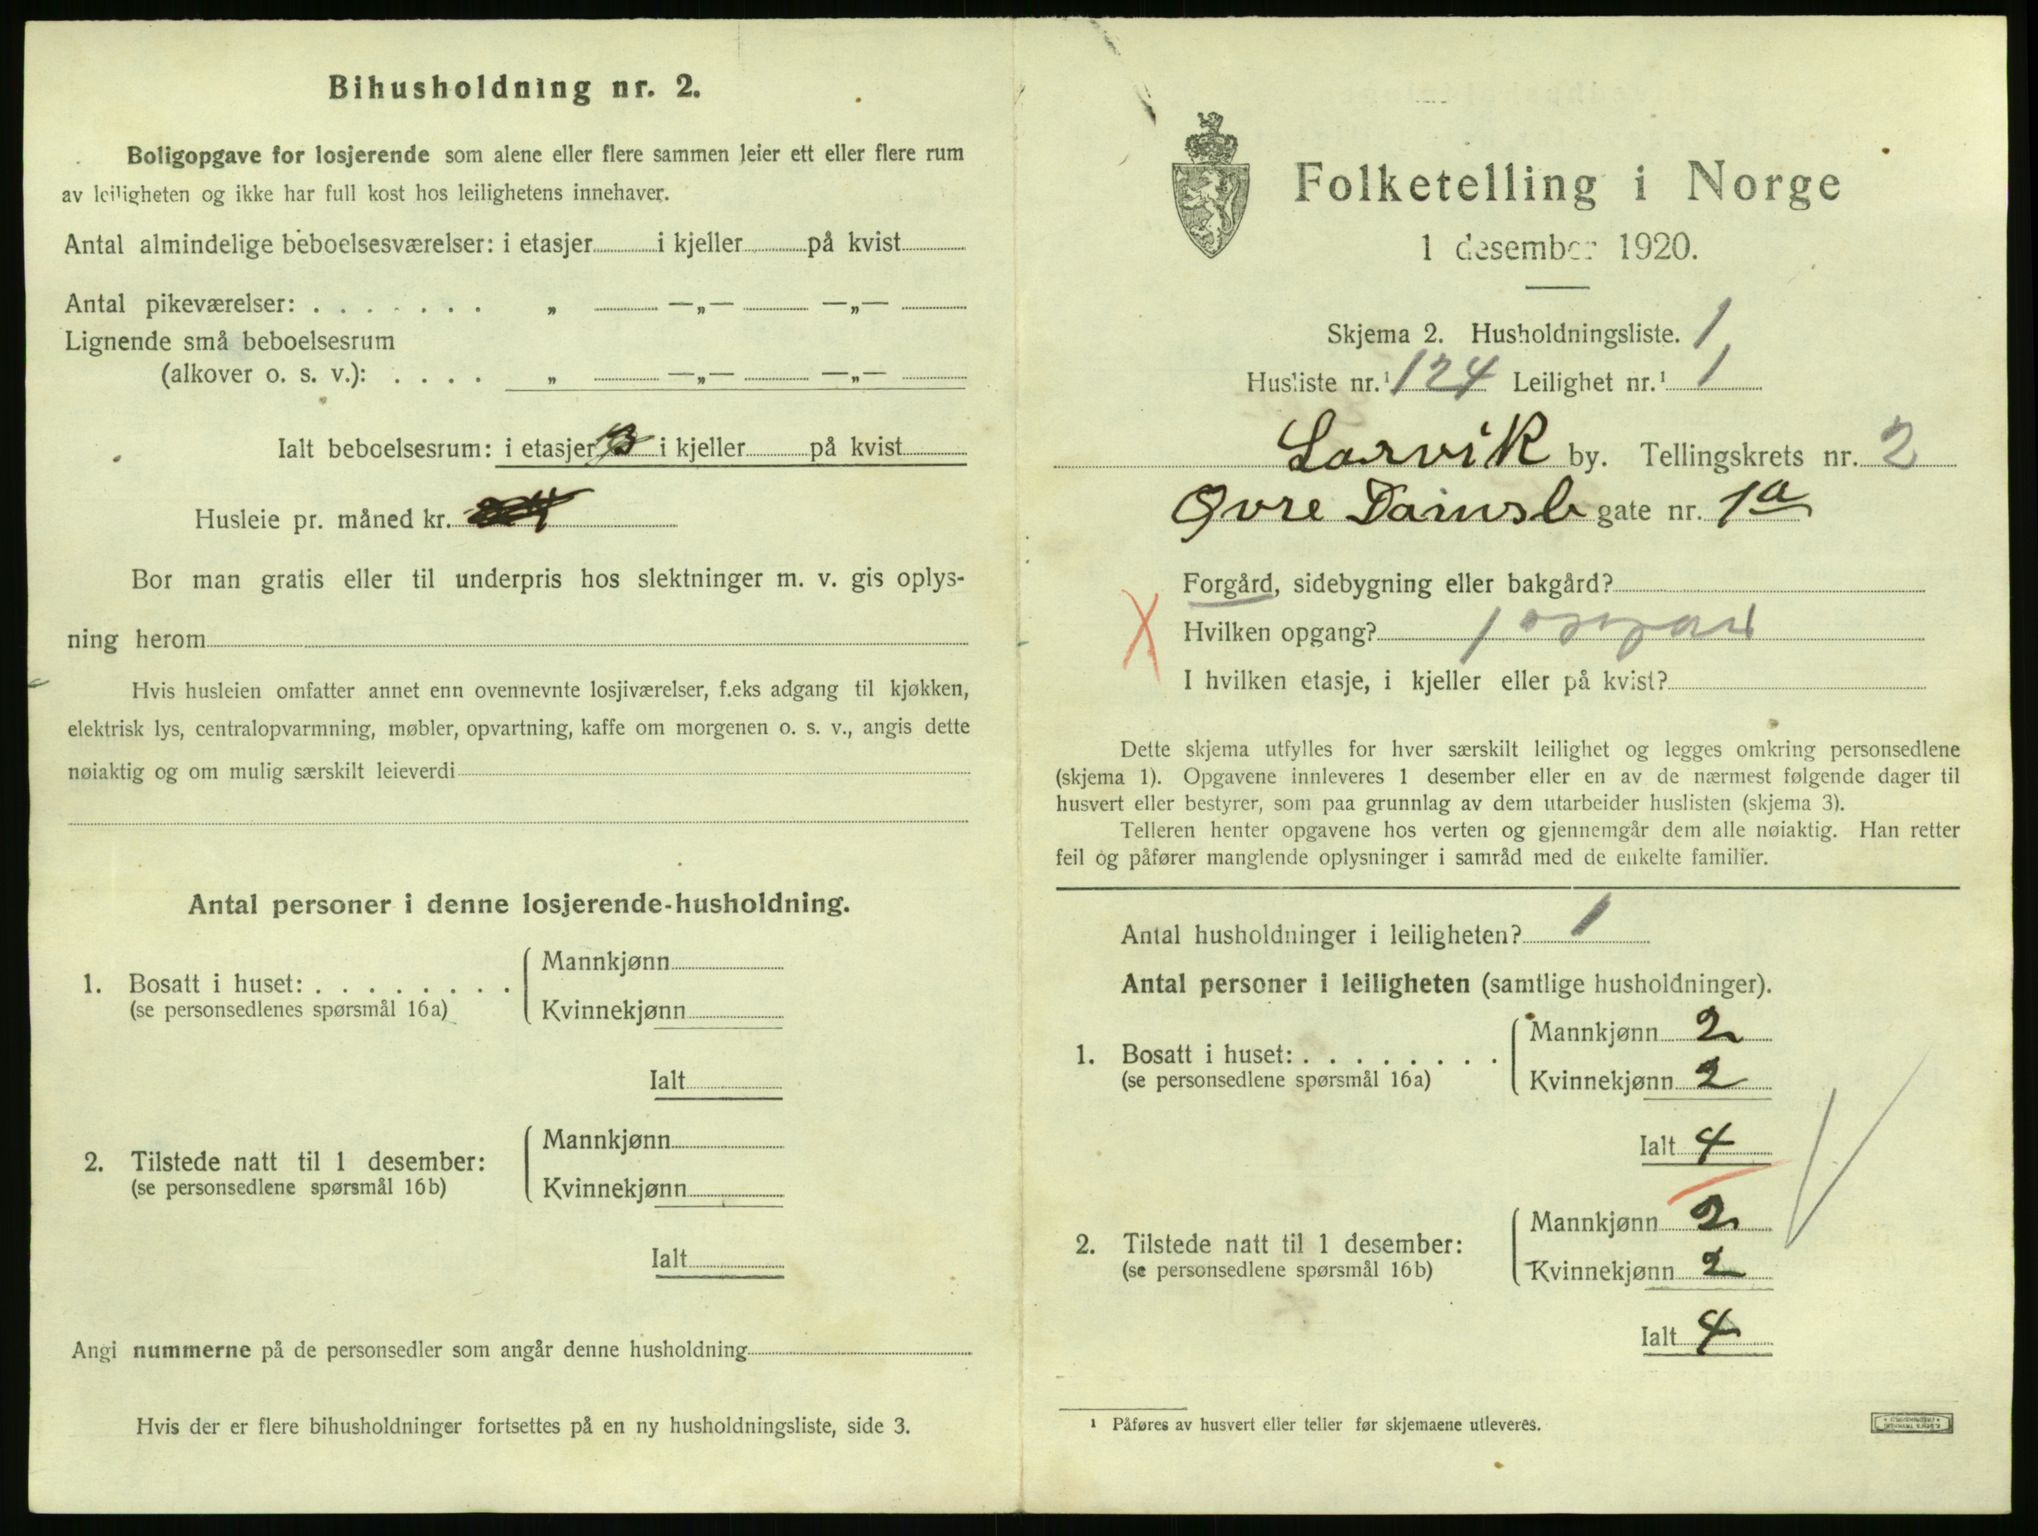 Bihusholdning nr. 2.
Boligopgave for losjerende som alene eller flere sammen leier ett eller flere rum
av leiligheten og ikke har full kost hos leilighetens innehaver.
Antal almindelige beboelsesværelser: i etasjer i kjeller på kvist
Antal pikeværelser: . . . . . . . „ —„— —„—
Lignende små beboelsesrum
(alkover o. s. v.): . . . . „ —„— —„—
Ialt beboelsesrum: i etasjer 3 i kjeller på kvist
Husleie pr. måned kr.
Bor man gratis eller til underpris hos slektninger m. v. gis oplys-
ning herom
Hvis husleien omfatter annet enn ovennevnte losjiværelser, f.eks adgang til kjøkken,
elektrisk lys, centralopvarmning, møbler, opvartning, kaffe om morgenen o. s. v., angis dette
nøiaktig og om mulig særskilt leieverdi
Antal personer i denne losjerende-husholdning.
1. Bosatt i huset: . . . . . . . .
(se personsedlenes spørsmål 16a)
Mannkjønn
Kvinnekjønn
Ialt
2. Tilstede natt til 1 desember:
(se personsedlene spørsmål 16b)
Mannkjønn
Kvinnekjønn
Ialt
Angi nummerne på de personsedler som angår denne husholdning
Hvis der er flere bihusholdninger fortsettes på en ny husholdningsliste, side 3.
Folketelling i Norge
1 desember 1920.
Skjema 2. Husholdningsliste. 1
Husliste nr.¹ 124 Leilighet nr.¹ 1
Larvik by. Tellingskrets nr. 2
Øvre gate nr. 1a
Forgård, sidebygning eller bakgård?
Hvilken opgang? 1
I hvilken etasje, i kjeller eller på kvist?
Dette skjema utfylles for hver særskilt leilighet og legges omkring personsedlene
(skjema 1). Opgavene innleveres 1 desember eller en av de nærmest følgende dager til
husvert eller bestyrer, som paa grunnlag av dem utarbeider huslisten (skjema 3).
Telleren henter opgavene hos verten og gjennemgår dem alle nøiaktig. Han retter
feil og påfører manglende oplysninger i samråd med de enkelte familier.
Antal husholdninger i leiligheten? 1
Antal personer i leiligheten (samtlige husholdninger).
1. Bosatt i huset: . . . . . . . .
(se personsedlene spørsmål 16a)
Mannkjønn 2
Kvinnekjønn 2
Ialt 4
2. Tilstede natt til 1 desember:
(se personsedlene spørsmål 16b)
Mannkjønn 2
Kvinnekjønn 2
Ialt 4
¹ Påføres av husvert eller teller før skjemaene utleveres.